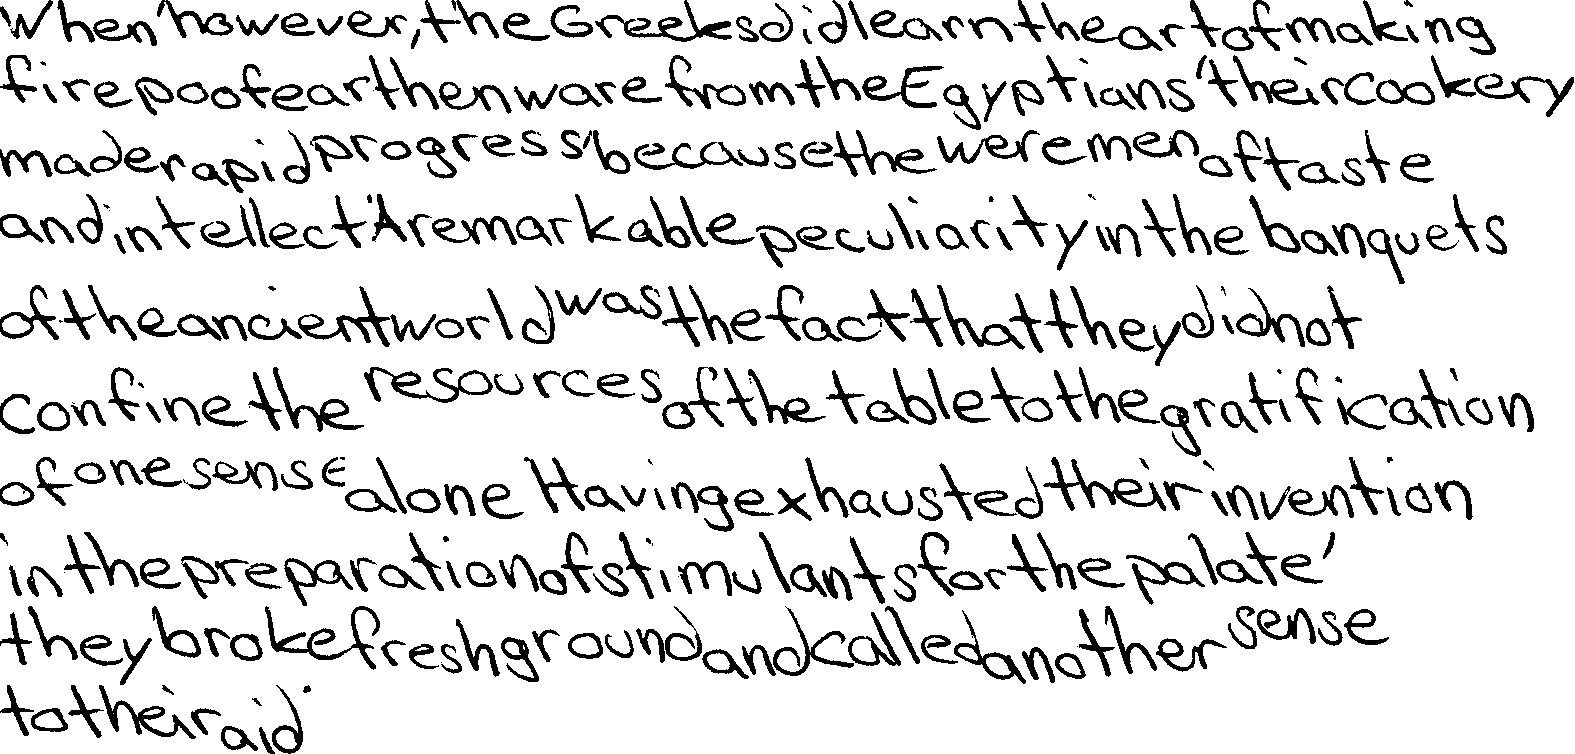 When however, the Greeks did learn the art of making
fire poof earthenware from the Egyptians' their cookery
made rapid progress' because the were men of taste
and intellect. A remarkable peculiarity in the banquets
of the ancient world was the fact that they did not
confine the resources of the table to the gratification
of one sense alone Having exhausted their invention
in the preparation of stimulants for the palate'
they broke fresh ground and called another sense
to their aid.